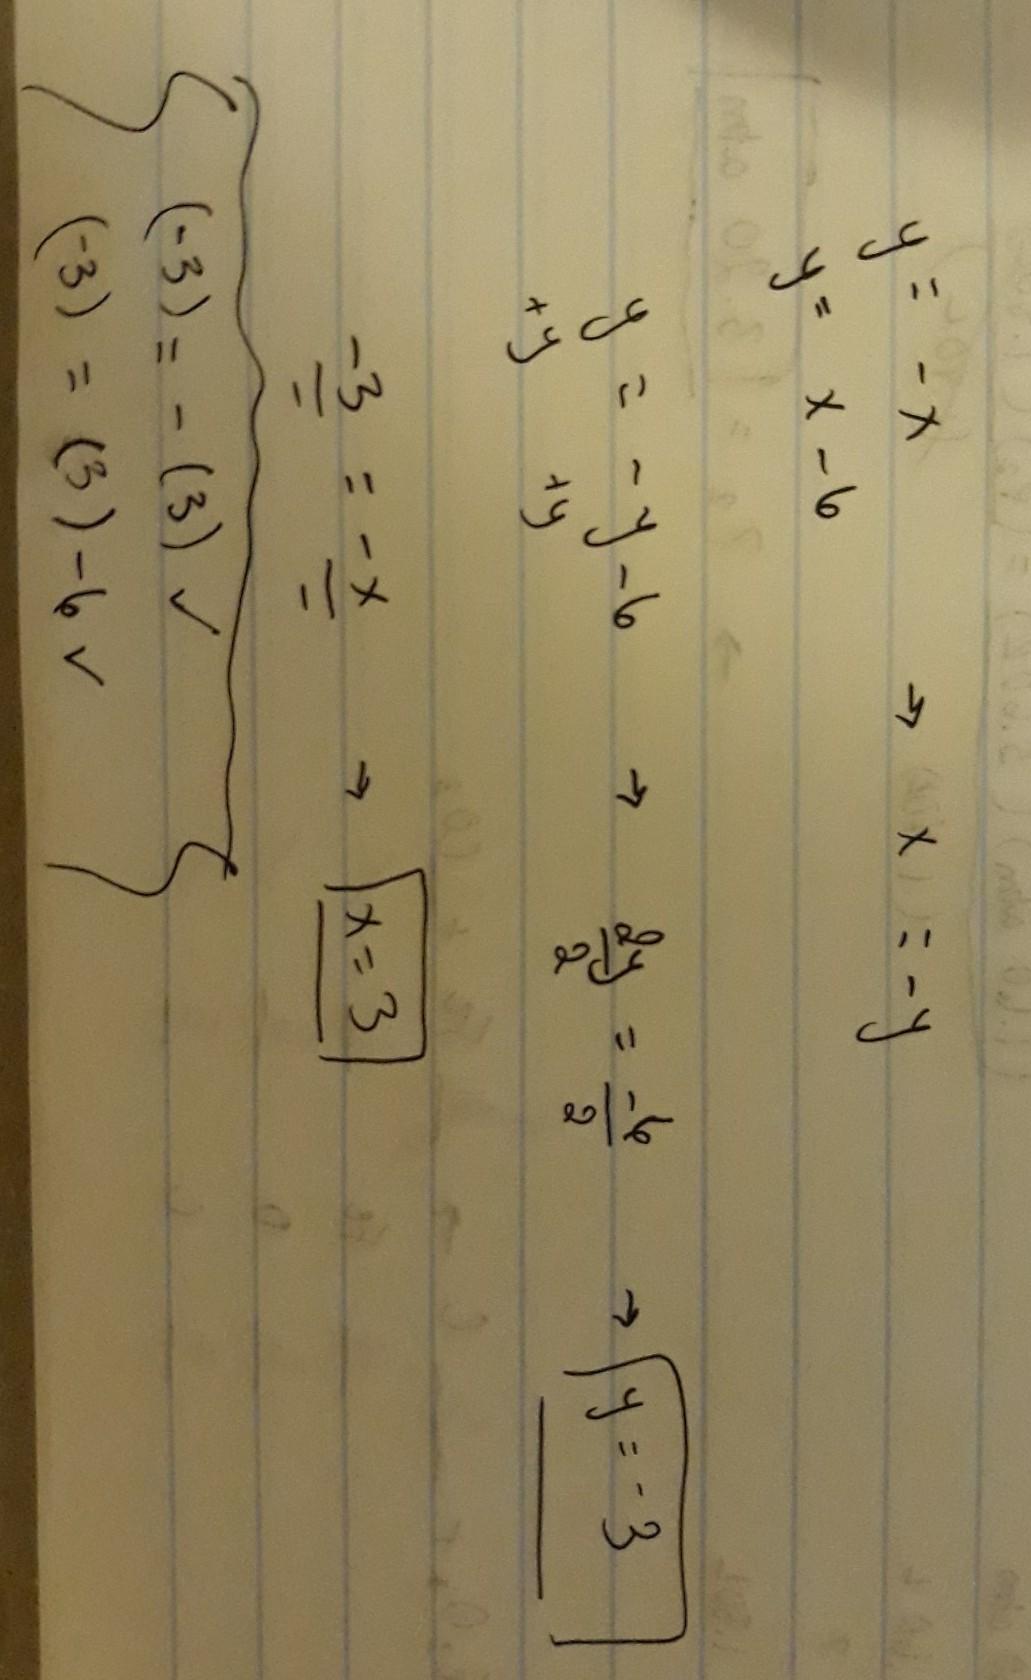 y = -x → x = -y
y = x - 6
y = -y - 6 → 2y/2 = -6/2 → y = -3
+y +y
-3 = -x → x = 3
- -
(-3) = -(3) ✓
(-3) = (3) - 6 ✓